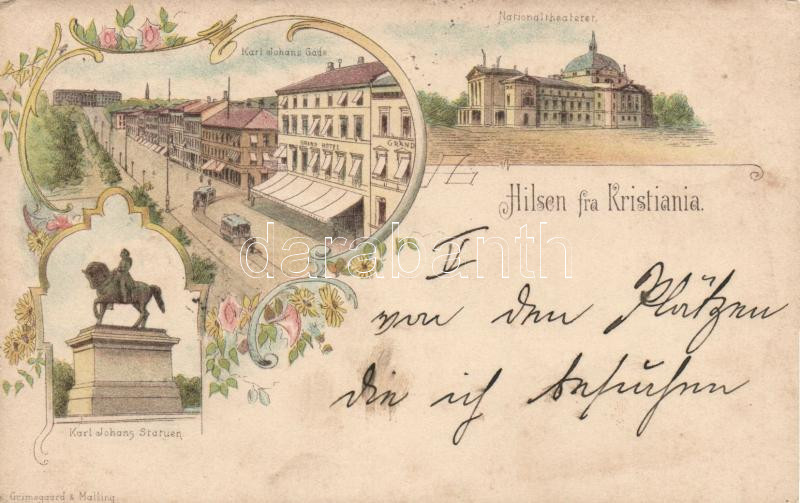 Karl Johans Gade
Nationaltheateret.
GRAND HOTEL
GRAND
Hilsen fra Kristiania.
darabanth
II
von den Plätzen
die ich besuchen
Karl Johans Statuen
Grimsgaard & Malling.